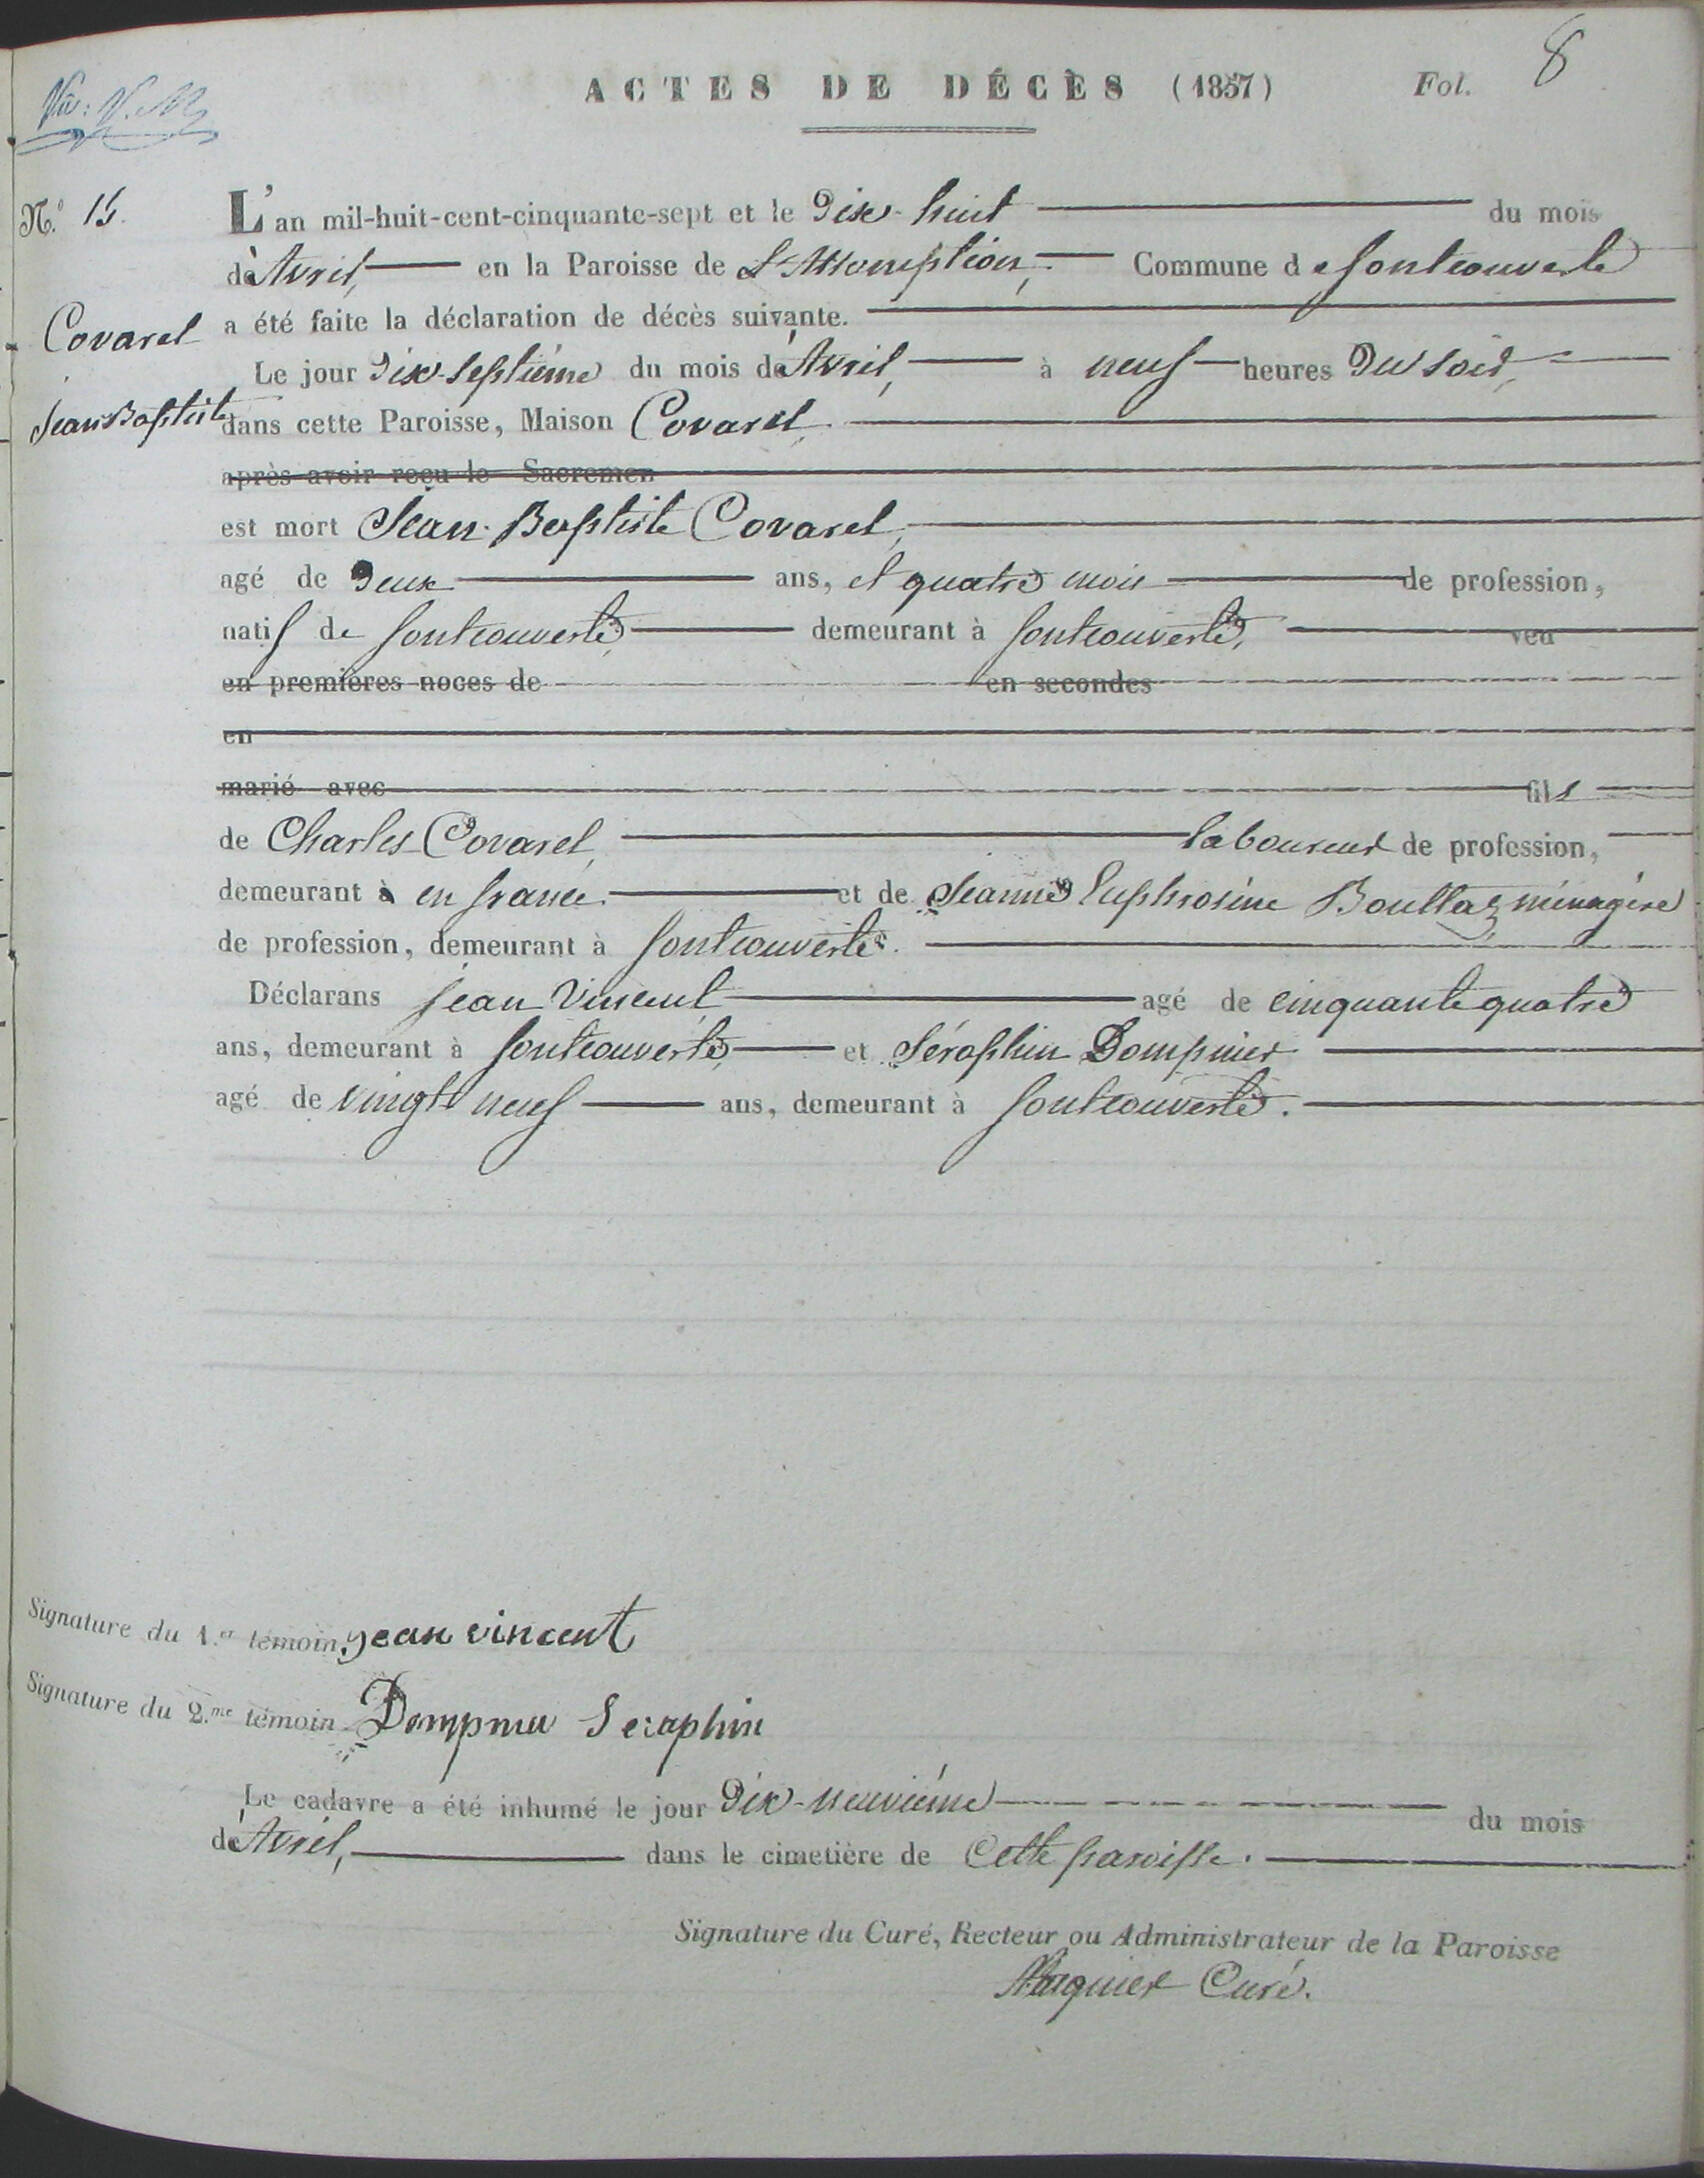 ACTES DE DÉCÈS (1857) Fol. 8
Vu: V. M
N.° 15.
L'an mil-huit-cent-cinquante-sept et le Dix-huit du mois
d'Avril, en la Paroisse de L'Assomption, Commune de fontcouverte
Covarel
a été faite la déclaration de décès suivante.
Le jour Dix-Septième du mois d'Avril, à neuf heures Du soir,
Jean Baptiste
dans cette Paroisse, Maison Covarel
après avoir reçu le Sacremen
est mort Jean-Baptiste Covarel,
agé de Deux ans, et quatre mois de profession,
natif de fontcouverte demeurant à fontcouverte, veu
en premières noces de en secondes
en
marié avec fils
de Charles Covarel, laboureur de profession,
demeurant à en france. et de Jeanne Euphrosine Boullaz ménagère
de profession, demeurant à fontcouverte.
Déclarans Jean Vincent agé de cinquante quatre
ans, demeurant à fontcouverte, et Séraphin Dompnier
agé de vingt neuf ans, demeurant à fontcouverte.
Signature du 1.er témoin. jean vincent
Signature du 2.me témoin Dompnier Seraphin
Le cadavre a été inhumé le jour Dix-neuvième du mois
d'Avril, dans le cimetière de Cette paroisse.
Signature du Curé, Recteur ou Administrateur de la Paroisse
Curé.